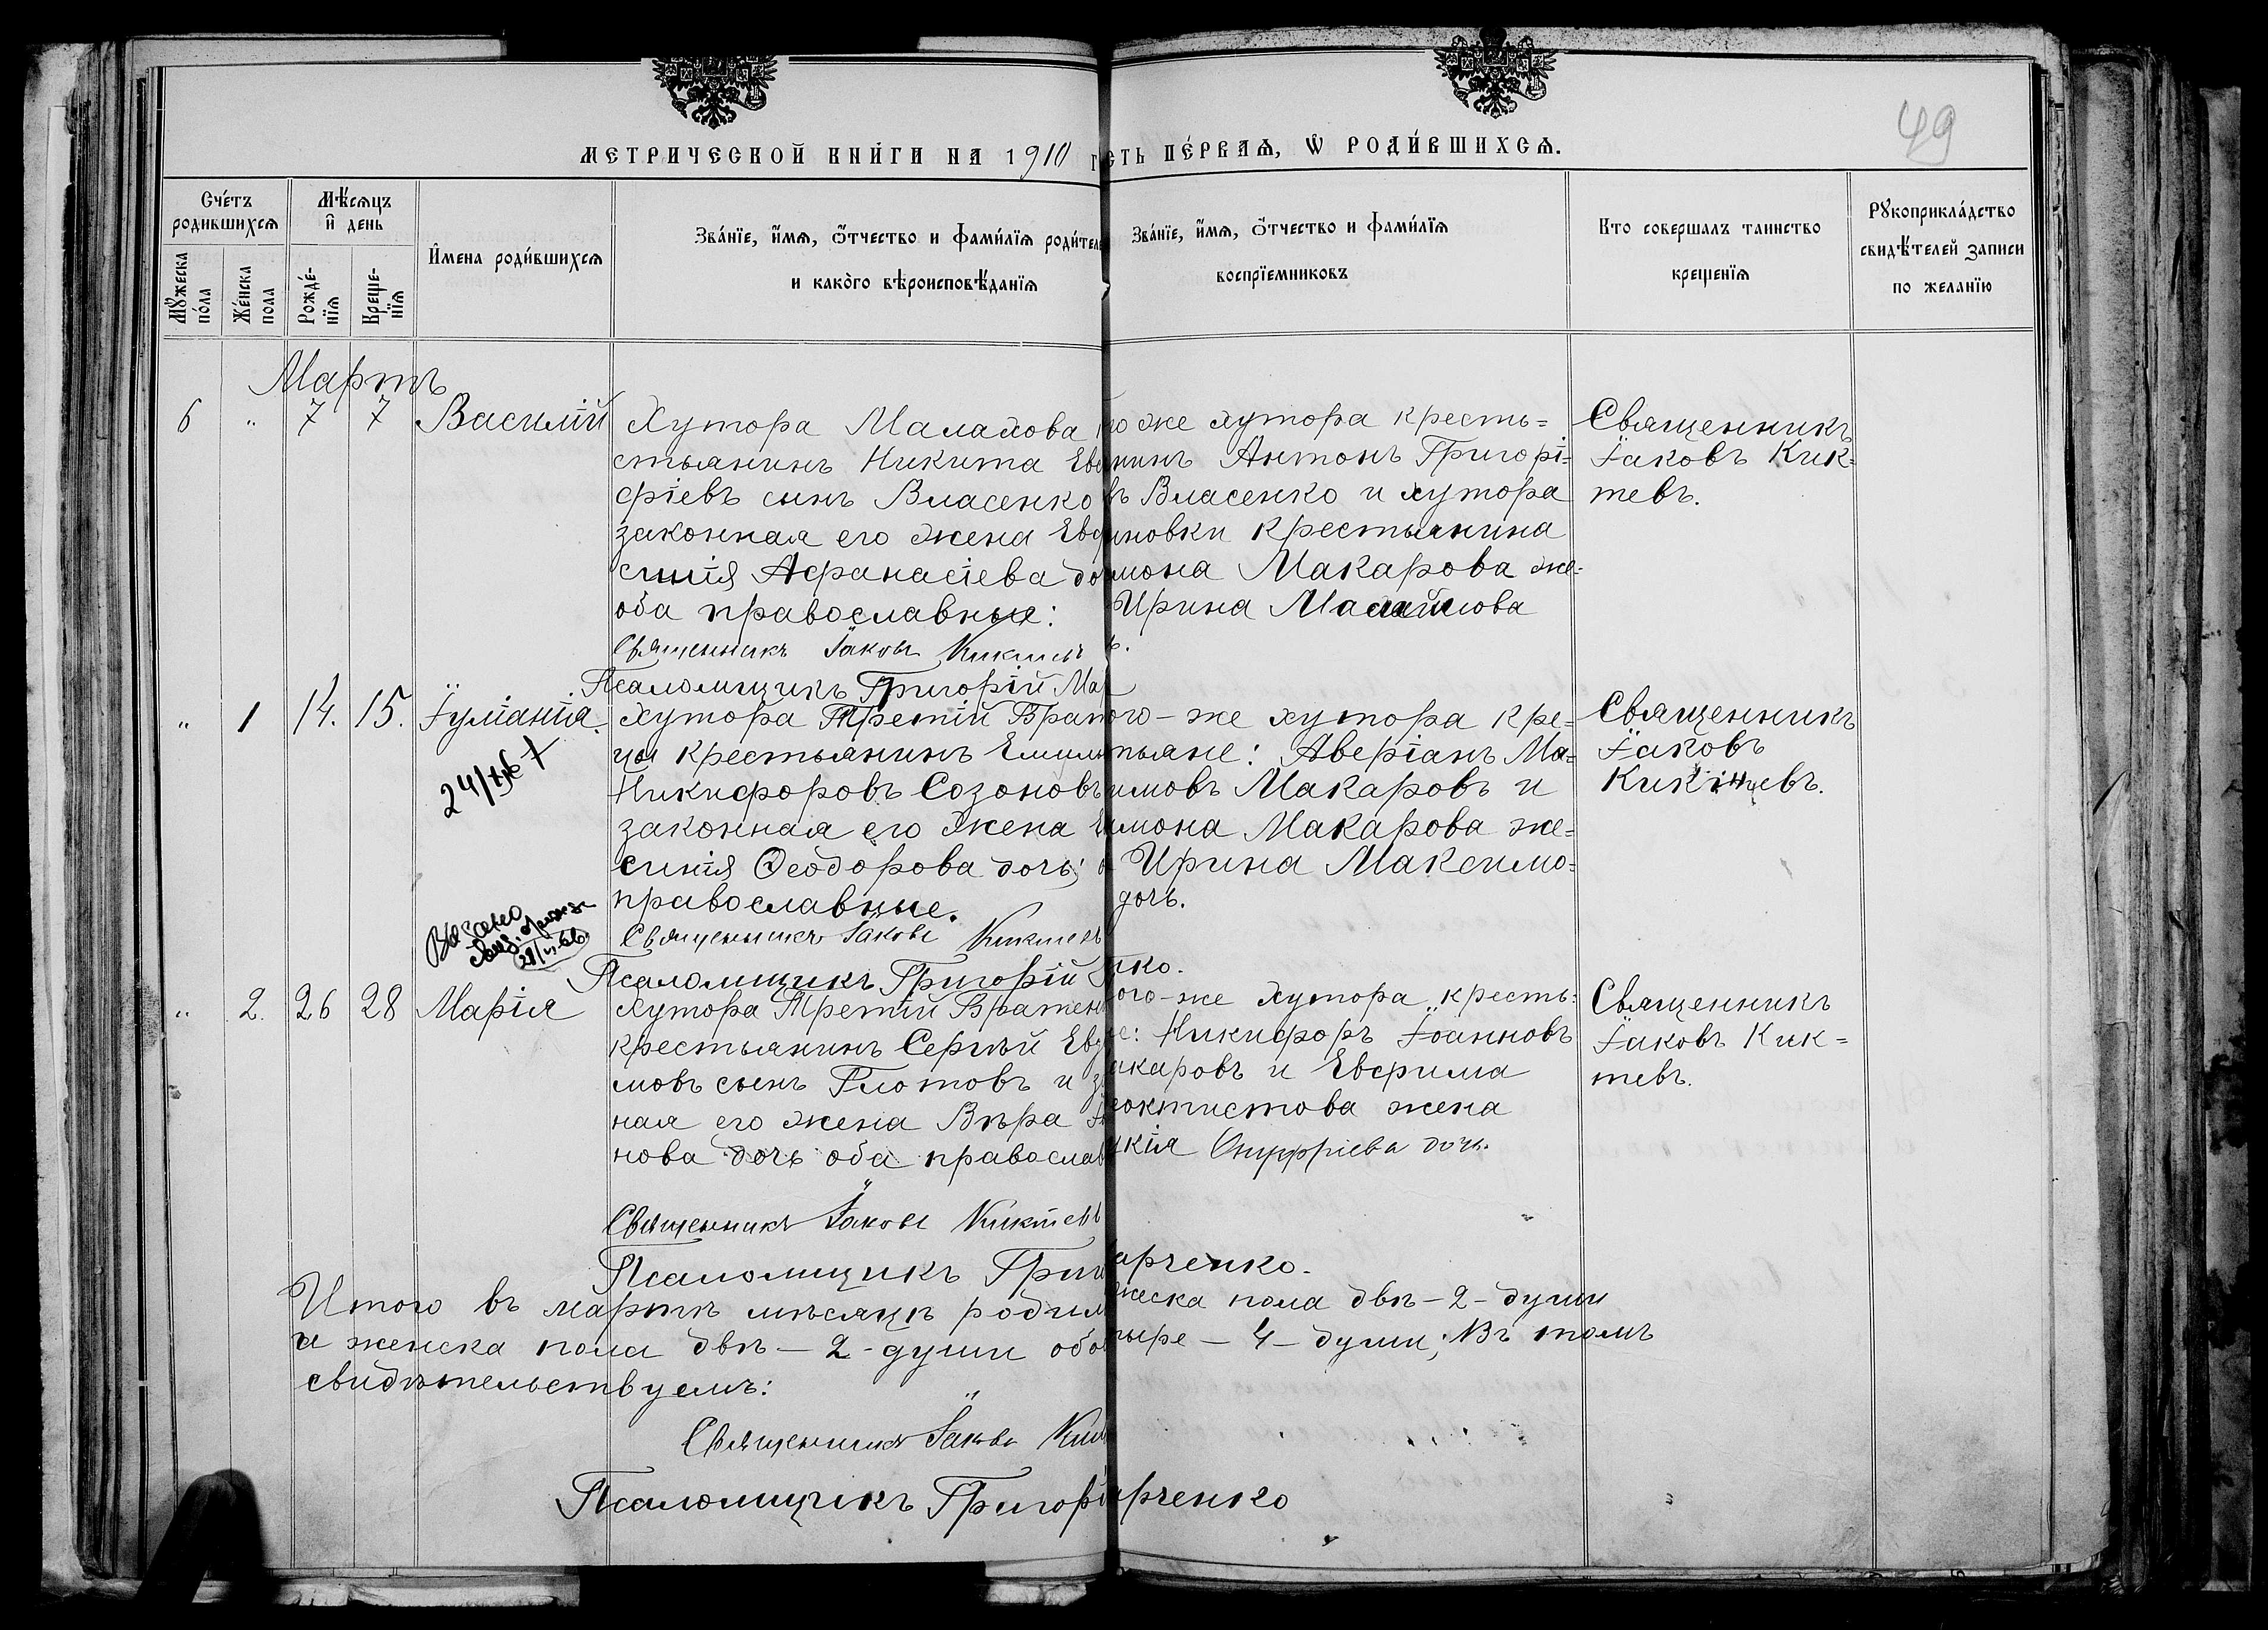 49
МЕТРИЧЕСКОЙ КНИ́ГИ НА 1910 Г
СТЬ ПЕ́РВАѦ, Ѡ РОДИ́ВШИХСѦ.
Сче́тъ родившихсѧ
Мꙋжеска по́ла
Же́нска пола
Мѣ́сѧцъ и день
Рожде́нїѧ
Креще́нїѧ
Имена роди́вшихсѧ
Зва́нїе, и́мѧ, ѻ́тчество и фами́лїѧ роди́теле
и како́го вѣроисповѣ́данїѧ
Зва́нїе, и́мѧ, ѻ́тчество и фами́лїѧ
воспрїемниковъ
Кто совершалъ таинство
крещенїѧ
Рꙋкоприкла́дство
свидѣ́телей записи
по желанїю
Мартъ
6 " 7 7 Василій
Хутора Малахова к
стьянинъ Никита Евс
фіевъ сынъ Власенко
законная его жена Евф
синія Афанасіева до
оба православные:
Священникъ Іаковъ Кикшевъ
Псаломщикъ Григорій Мар
го же хутора кресть=
нинъ Антонъ Григорі=
въ Власенко и хутора
иновки крестьянина
мона Макарова же-
Ирина
Священникъ
Іаковъ Кик=
тевъ.
" 1 14. 15. Іуліанія.
24/
Хутора Третій Брат
цы крестьянинъ Емил
Никифоровъ Созоновъ
законная его жена Е
синія Ѳеодорова дочь; о
православные.
Священникъ Іаковъ
Псаломщикъ Григорій
ого-же хутора кре=
тьяне: Аверіанъ Ма=
имовъ Макаровъ и
мона Макарова же=
Ирина Максимо=
дочь.
нко.
Священникъ
Іаковъ
" 2. 26 28 Марія
Хутора Третій Братен
крестьянинъ Сергѣй Евд
мовъ сынъ Глотовъ и з
ная его жена Вѣра
нова дочь оба православ
Священникъ Іаковъ
Псаломщикъ Григ
ого-же хутора кресть=
е: Никифоръ Іоанновъ
акаровъ и Евфима
еоктистова жена
кія Онуфріева дочь.
арченко.
Священникъ
Іаковъ Кик=
тевъ.
Итого въ мартѣ мѣсяцѣ родил
жеска пола двѣ - 2 - души
а женска пола двѣ - 2 - души обо
тыре - 4 - души; Въ томъ
свидѣтельствуемъ:
Священникъ Іаковъ
Псаломщикъ Григорі
арченко